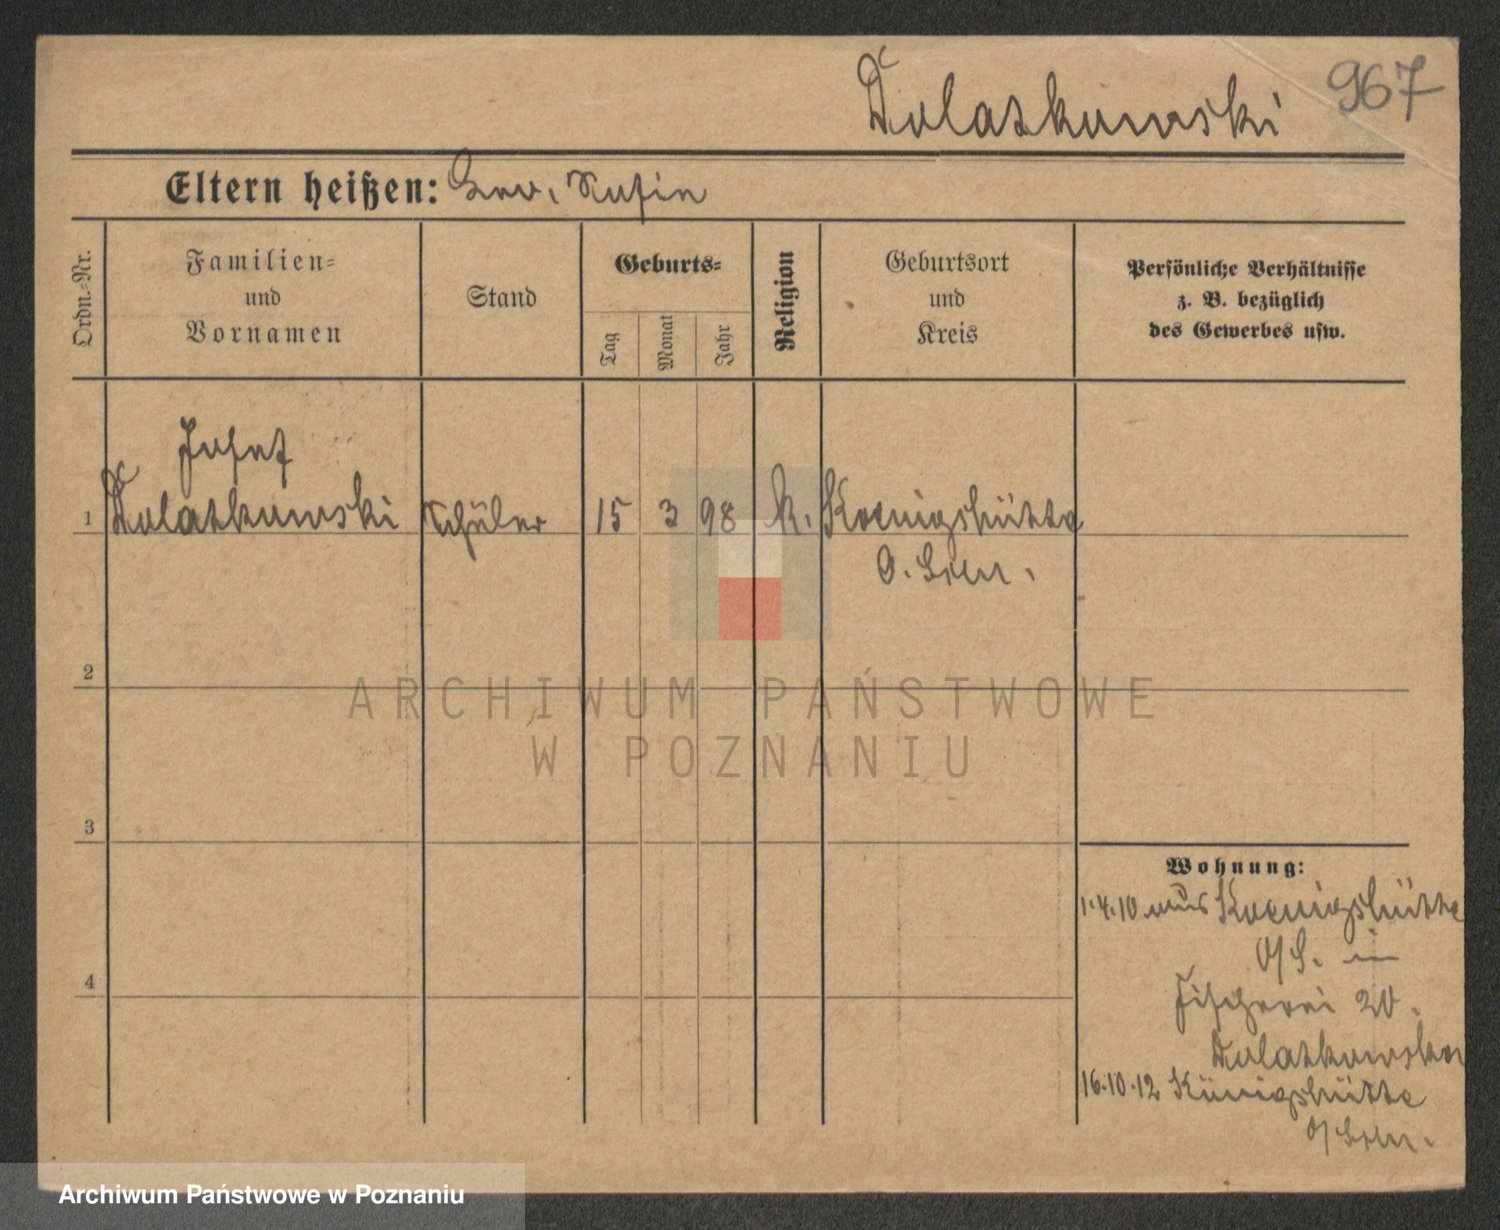 Dolatkowski 967
Eltern heißen:
Ordn.-Nr.
Familien-
und
Vornamen
Stand
Geburts-
Tag
Monat
Jahr
Religion
Geburtsort
und
Kreis
Persönliche Verhältnisse
z. B. bezüglich
des Gewerbes usw.
Josef
1 Dolatkowski Schüler 15 3 98 k. Koenigshütte
O. Schl.
2
3
4
Wohnung:
1.4.10 aus Koenigshütte
O/S. in
Fischerei 20.
Dolatkowska
16.10.12 Königshütte
O/Schl.
ARCHIWUM PAŃSTWOWE
W POZNANIU
Archiwum Państwowe w Poznaniu